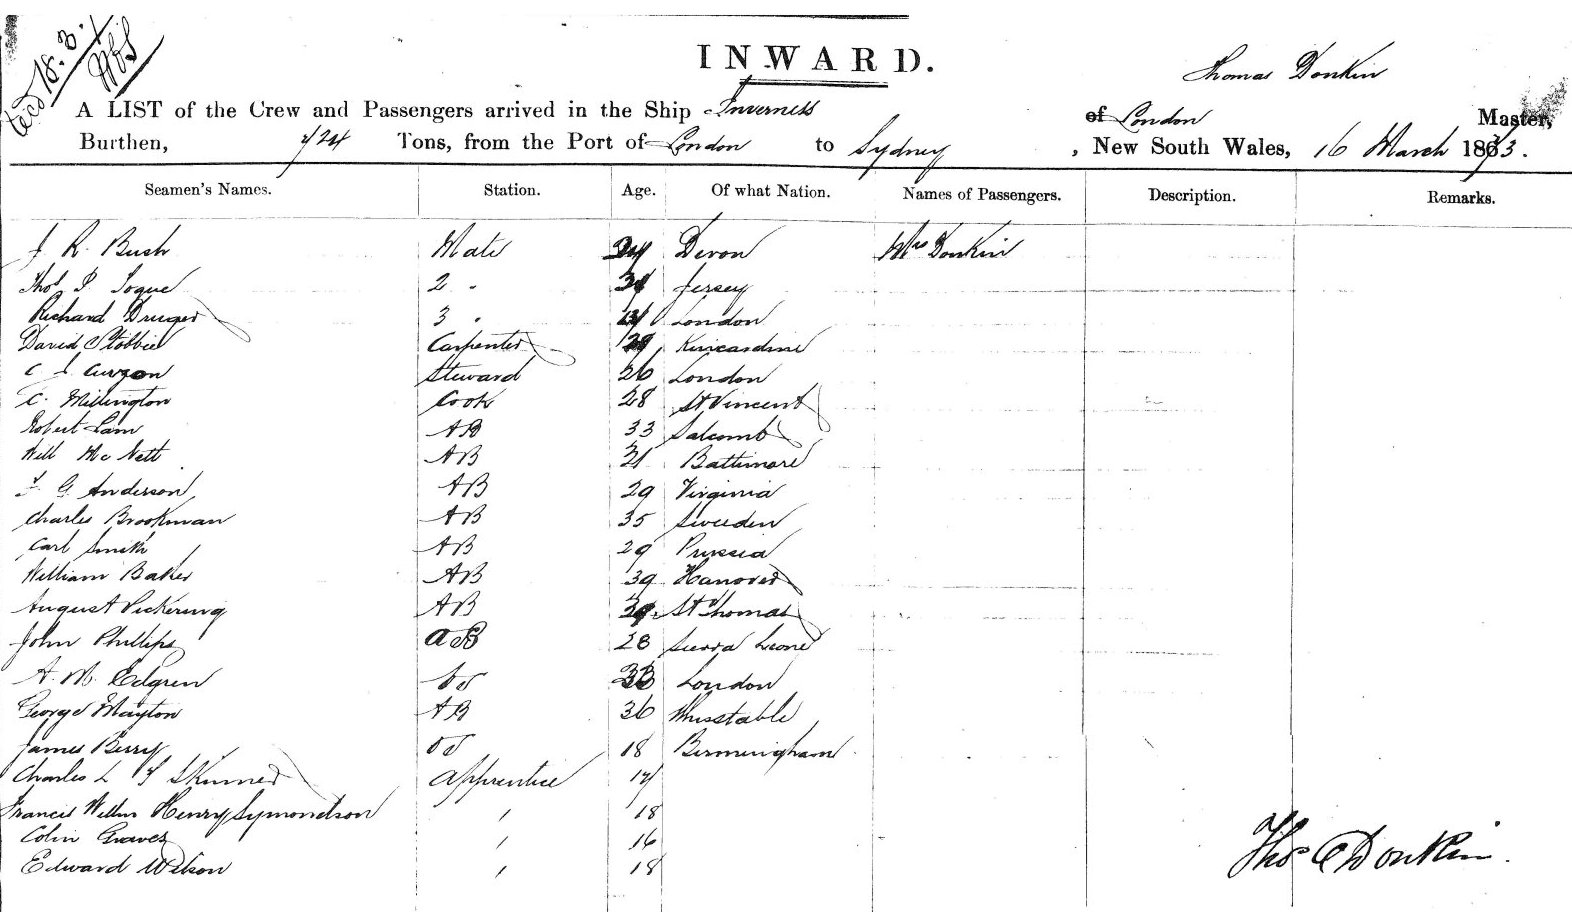 Recd 18.3.
INWARD.
Thomas Donkin
A LIST of the Crew and Passengers arrived in the Ship Inverness of London Master,
Burthen, 724 Tons, from the Port of London to Sydney, New South Wales, 16 March 1873.
Seamen's Names. Station. Age. Of what Nation. Names of Passengers. Description. Remarks.
J R. Bush Mate Devon Mrs Donkin
Thos P. Togue 2 " Jersey
Richard 3 " London
David Stobbie Carpenter Kincardine
C J. Curzon Steward 26 London
C. Millington Cook 28 St Vincent
Robert Lam AB 33 Salcomb
Will Mc Nett AB 21 Baltimore
G. Anderson AB 29 Virginia
Charles Brookman AB 35 Sweden
Carl Smith AB 29 Prussia
William Baker AB 39 Hanover
August Pickering AB St Thomas
John Phillips AB 28 Sierra Leone
A. M. Edgren OS London
George Mayton AB 36 Whisstable
James Berry OS 18 Birmingham
Charles L Y Skinner Apprentice 17
Francis Willm Henry Symondson " 18
Colin Graves " 16
Edward Wilson " 18
Thos C Donkin.